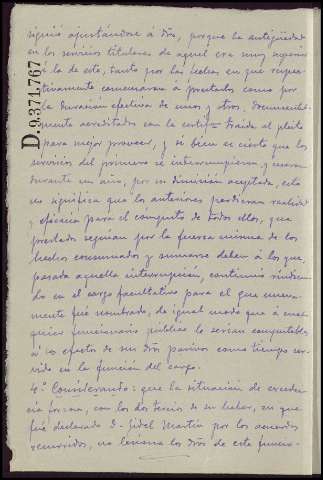 siguió ajustándose á dro, porque la antigüedad
en los servicios titulares de aquel era muy superior
á la de este, tanto por las fechas en que respec-
tivamente comenzaron a prestarlos como por
la duración efectiva de unos y otros, documental-
mente acreditados con la certifon traida al pleito
para mejor proveer, y si bien es cierto que los
servicios del primero se interrumpieron y cesaron
durante un año, por su dimisión aceptada, esto
no significa que los anteriores perdieran realidad
y eficacia para el computo de todos ellos, que
prestados seguian por la fuerza misma de los
hechos consumados y sumarse deben á los que,
pasada aquella interrupción, continuó rindien-
do en el cargo facultativo para el que nueva-
mente fué nombrado, de igual modo que á cual-
quier funcionario público le serian computables
á los efectos de sus dros pasivos como tiempo ser-
vido en la función del cargo.
4.º Considerando: que la situación de exceden-
cia forzosa, con los dos tercios de su haber, en que
fué declarado D. Fidel Martin por los acuerdos
recurridos, no lesiona los dros de este funcio-
D.9.371.767